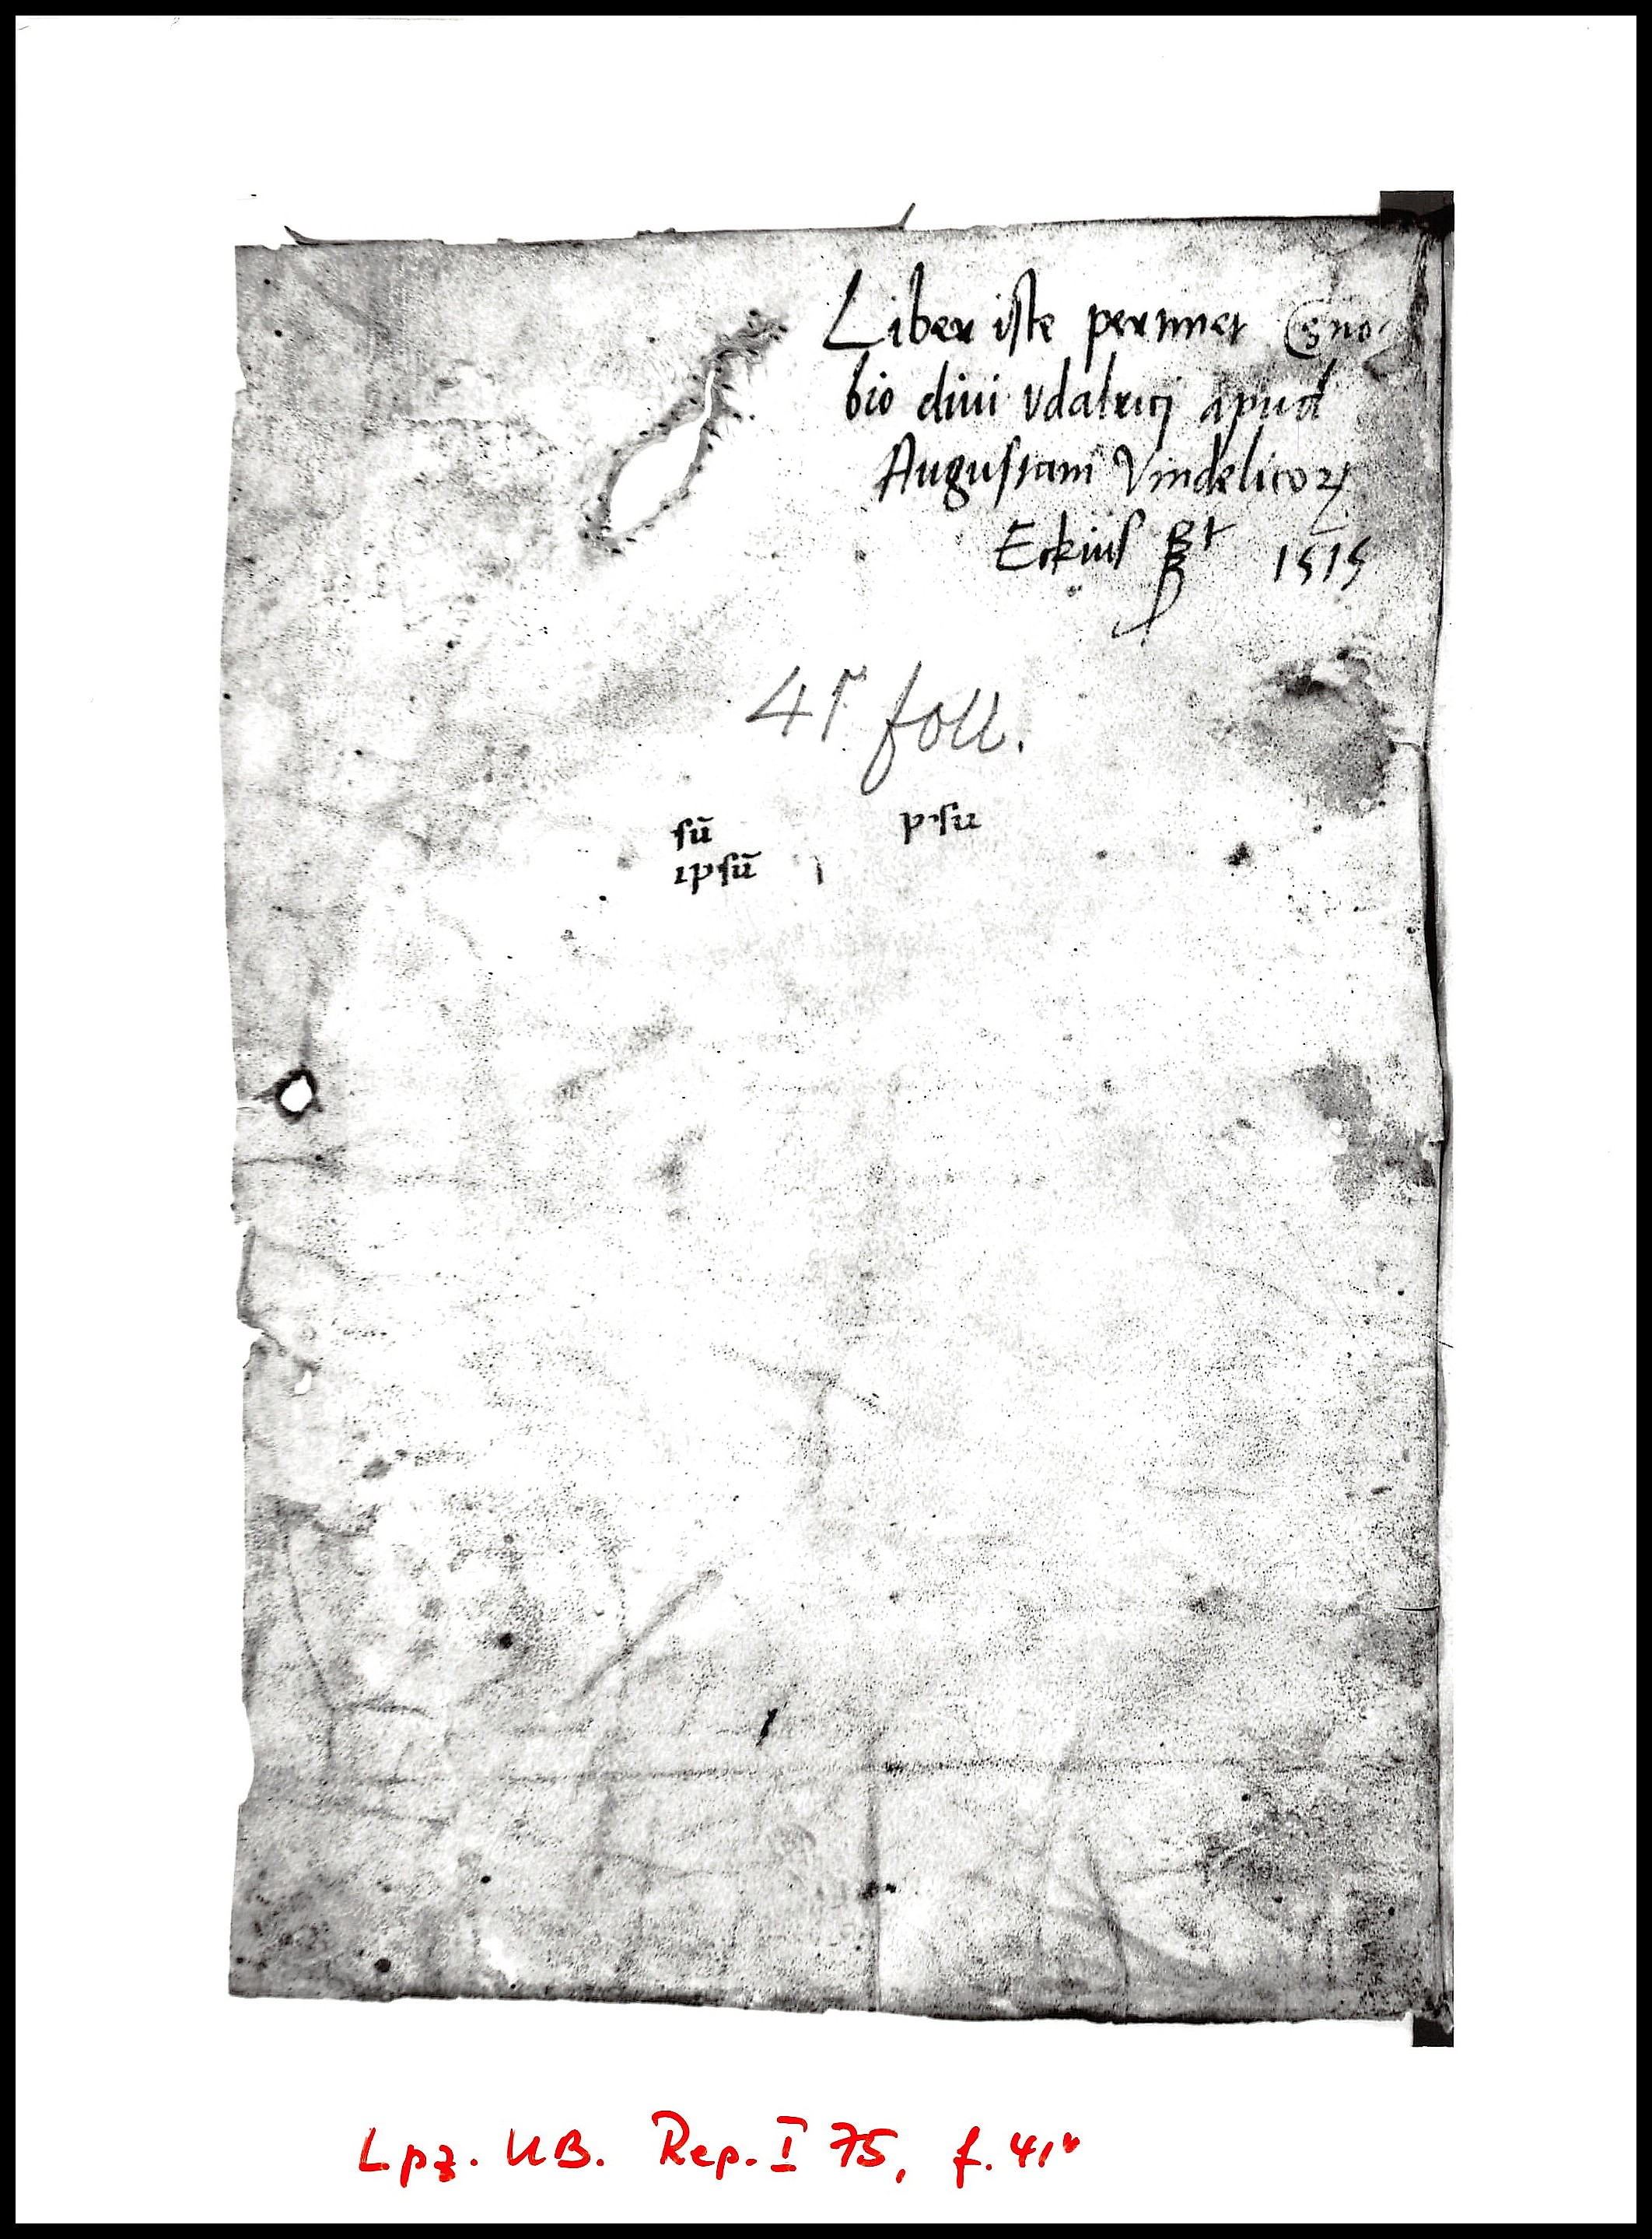 Liber iste pertinet Cęno-
bio diui Vdalricj apud
Augustam Vindelicoꝝ
Eckius 1515
41 foll.
sū pſu
ipſū
Lpz. UB. Rep. I 75, f. 41v